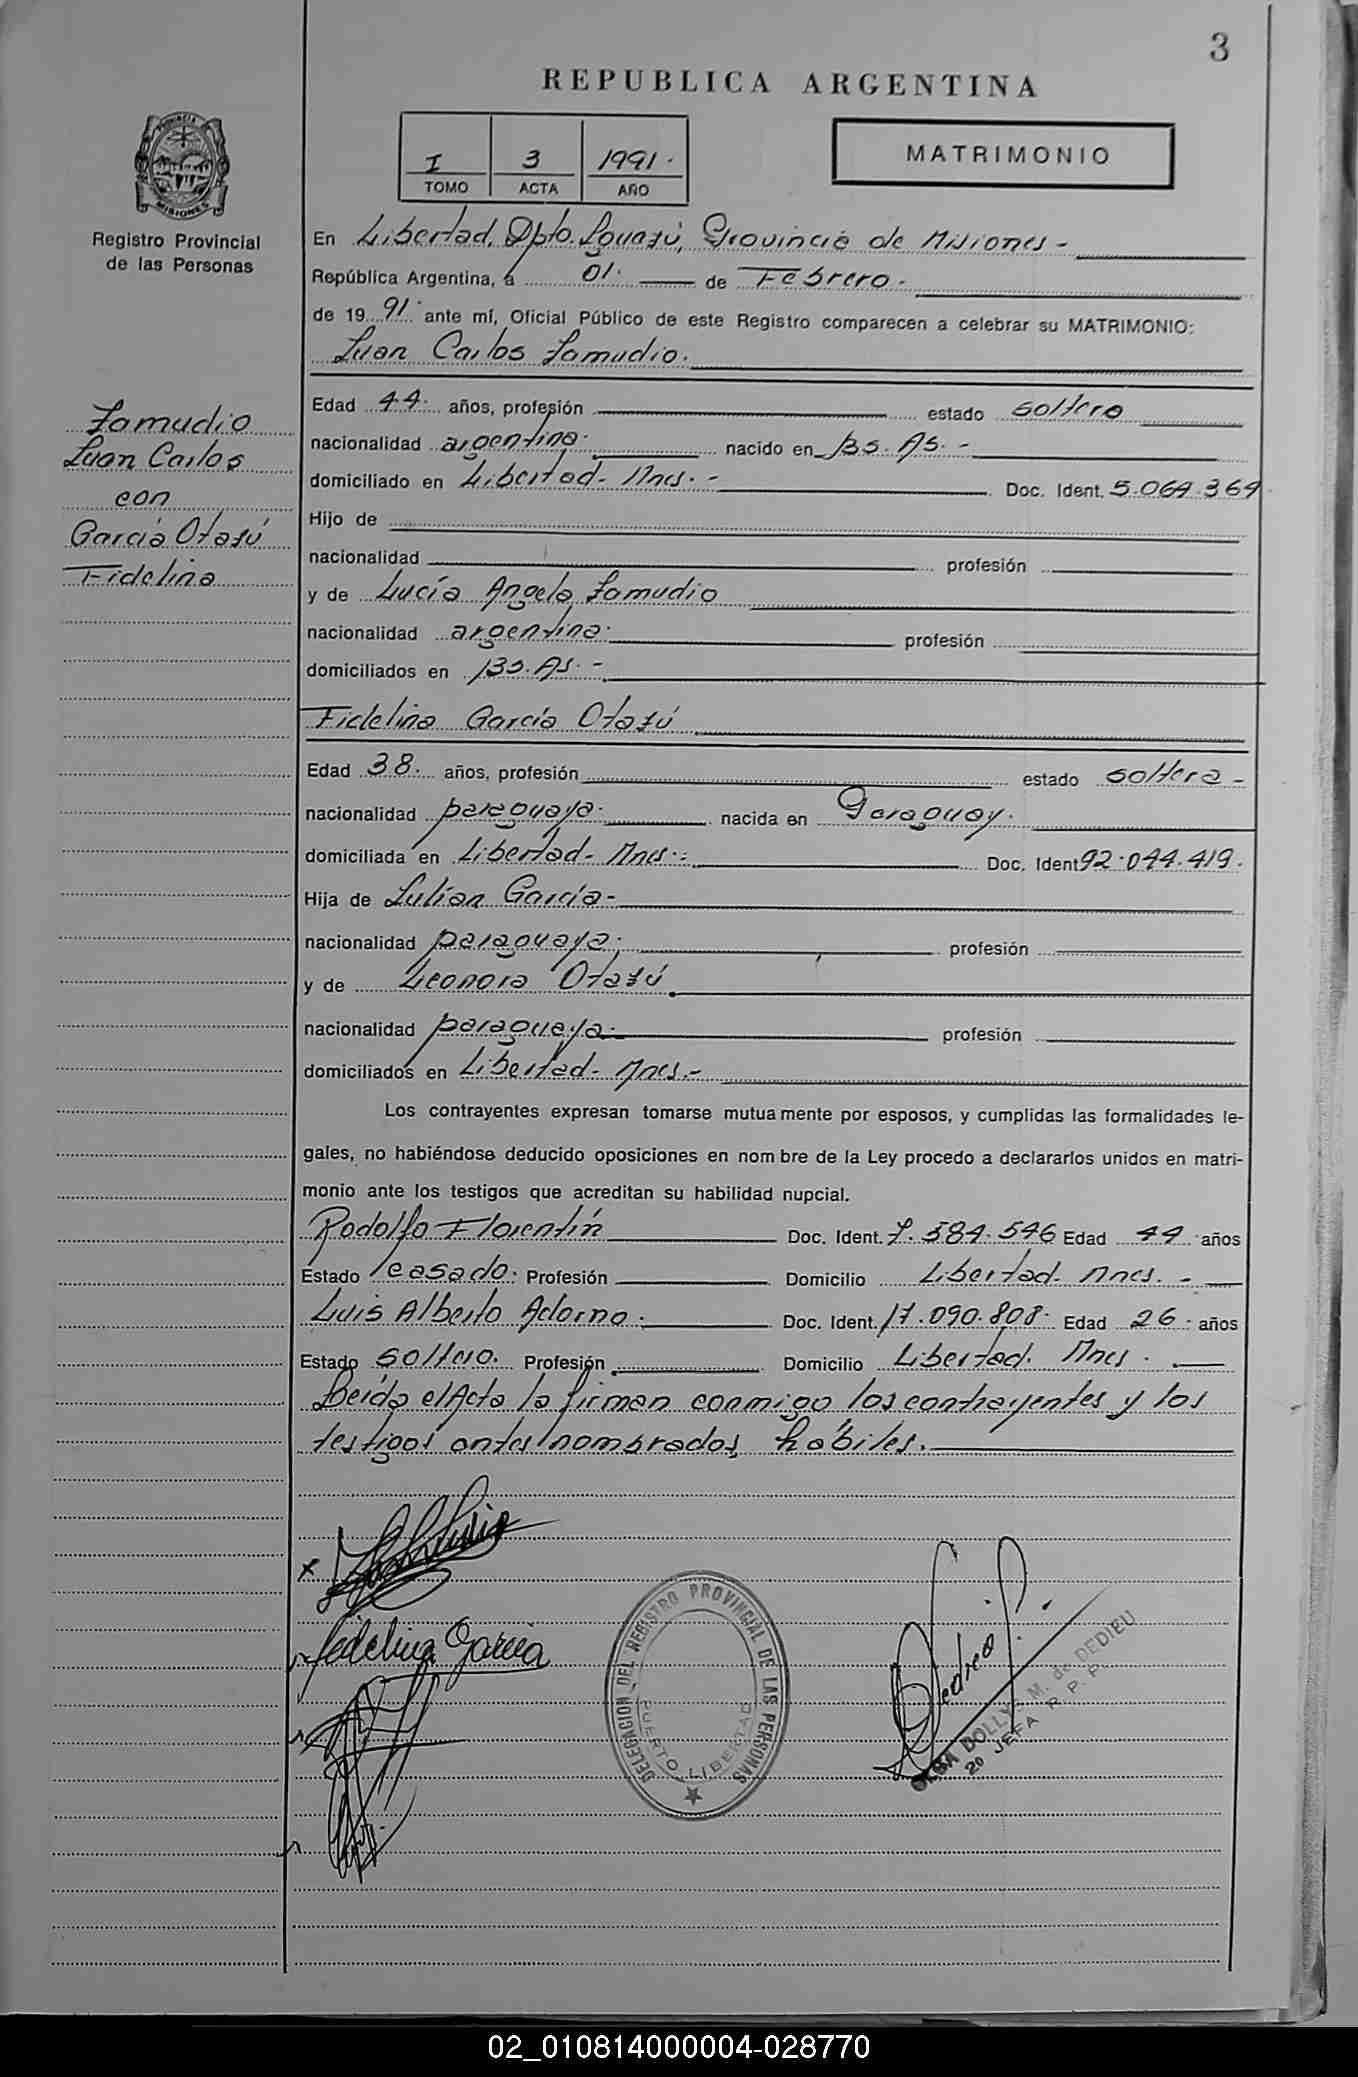 3
REPUBLICA ARGENTINA
I 3 1991.
TOMO ACTA AÑO
MATRIMONIO
PROVINCIA
MISIONES
Registro Provincial
de las Personas
En Libertad, Dpto. Iguazú, Provincia de Misiones -
República Argentina, a 01. de Febrero -
de 19 91. ante mí, Oficial Público de este Registro comparecen a celebrar su MATRIMONIO:
Juan Carlos Zamudio.
Zamudio
Juan Carlos
con
García Otazú
Fidelina
Edad 44. años, profesión estado soltero
nacionalidad argentina. nacido en Bs. As. -
domiciliado en Libertad - Mnes. - Doc. Ident. 5.064.364
Hijo de
nacionalidad profesión
y de Lucía Angela Zamudio
nacionalidad argentina. profesión
domiciliados en Bs. As. -
Fidelina García Otazú
Edad 38. años, profesión estado soltera -
nacionalidad paraguaya. nacida en Paraguay.
domiciliada en Libertad - Mnes. - Doc. Ident 92.044.419.
Hija de Julián García -
nacionalidad paraguaya. profesión
y de Leonora Otazú
nacionalidad paraguaya. profesión
domiciliados en Libertad - Mnes. -
Los contrayentes expresan tomarse mutuamente por esposos, y cumplidas las formalidades le-
gales, no habiéndose deducido oposiciones en nombre de la Ley procedo a declararlos unidos en matri-
monio ante los testigos que acreditan su habilidad nupcial.
Rodolfo Florentín Doc. Ident. 7.584.546 Edad 44 años
Estado casado. Profesión Domicilio Libertad - Mnes. -
Luis Alberto Adorno. Doc. Ident. 17.090.808. Edad 26. años
Estado soltero. Profesión Domicilio Libertad. Mnes.
Leída el Acta la firman conmigo los contrayentes y los
testigos antes nombrados, hábiles.
Fidelina García
DELEGACION DEL REGISTRO PROVINCIAL DE LAS PERSONAS
PUERTO LIBERTAD
DOLLYS M. de DEDIEU
JEFA R. P. P.
02_010814000004-028770